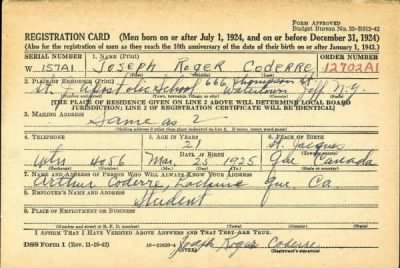 FORM APPROVED
Budget Bureau No. 33-R012-42
REGISTRATION CARD (Men born on or after July 1, 1924, and on or before December 31, 1924)
(Also for the registration of men as they reach the 18th anniversary of the date of their birth on or after January 1, 1943.)
SERIAL NUMBER 1. NAME (Print) ORDER NUMBER
W 157A1 Joseph Roger Coderre 12702A1
2. PLACE OF RESIDENCE (Print) 666 Thompson St
Apostolic School Watertown Jeff N.Y.
[THE PLACE OF RESIDENCE GIVEN ON LINE 2 ABOVE WILL DETERMINE LOCAL BOARD
JURISDICTION; LINE 2 OF REGISTRATION CERTIFICATE WILL BE IDENTICAL]
3. MAILING ADDRESS
Same as 2
[Mailing address if other than place indicated on line 2. If same, insert word same]
4. TELEPHONE 5. AGE IN YEARS 6. PLACE OF BIRTH
21 St. Jacques
DATE OF BIRTH
4056 Mar. 25 1925 Que Canada
7. NAME AND ADDRESS OF PERSON WHO WILL ALWAYS KNOW YOUR ADDRESS
Arthur Coderre, Lachine Que. Ca.
8. EMPLOYER'S NAME AND ADDRESS
Student
9. PLACE OF EMPLOYMENT OR BUSINESS
I AFFIRM THAT I HAVE VERIFIED ABOVE ANSWERS AND THAT THEY ARE TRUE.
DSS Form 1 (Rev. 11-16-42) (OVER) Joseph Roger Coderre
(Registrant's signature)